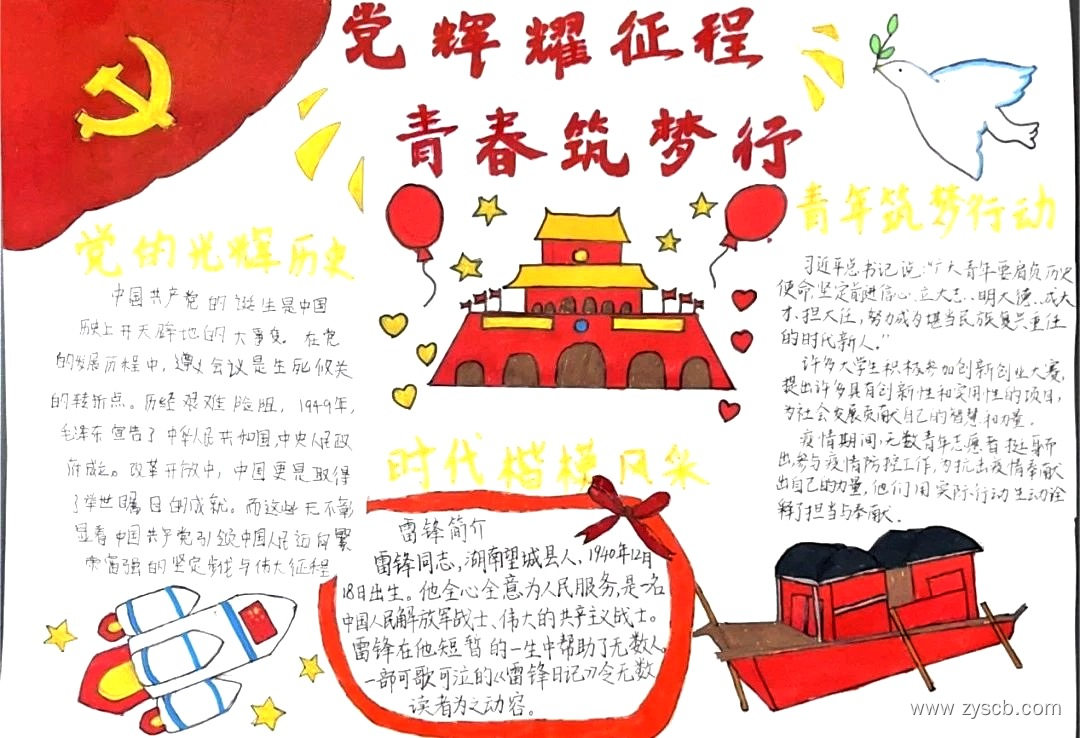 党辉耀征程
青春筑梦行
党的光辉历史
中国共产党的诞生是中国
历史上开天辟地的大事变。在党
的发展历程中，遵义会议是生死攸关
的转折点。历经艰难险阻，1949年，
毛泽东宣告了中华人民共和国，中央人民政
府成立。改革开放中，中国更是取得
了举世瞩目的成就。而这些无不彰
显着中国共产党引领中国人民迈向繁
荣富强的坚定步伐与伟大征程
时代楷模风采
雷锋简介
雷锋同志，湖南望城县人，1940年12月
18日出生。他全心全意为人民服务，是一名
中国人民解放军战士、伟大的共产主义战士。
雷锋在他短暂的一生中帮助了无数人，
一部可歌可泣的《雷锋日记》令无数
读者为之动容。
青年筑梦行动
习近平总书记说：“广大青年要肩负历史
使命，坚定前进信心，立大志、明大德、成大
才、担大任，努力成为堪当民族复兴重任
的时代新人。”
许多大学生积极参加创新创业大赛，
提出许多具有创新性和实用性的项目，
为社会发展贡献自己的智慧和力量。
疫情期间，无数青年志愿者挺身而
出，参与疫情防控工作，为抗击疫情奉献
出自己的力量，他们用实际行动生动诠
释了担当与奉献。
www.zyscb.com